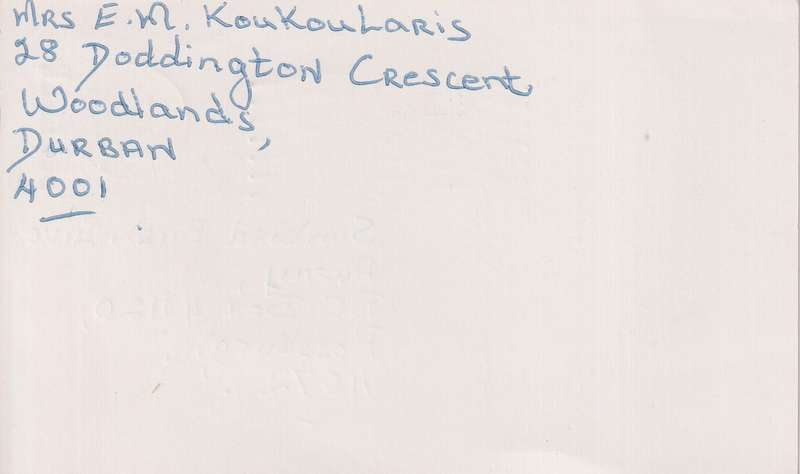 MRS E.M. KOUKOULARIS
28 Doddington Crescent,
Woodlands,
DURBAN,
4001